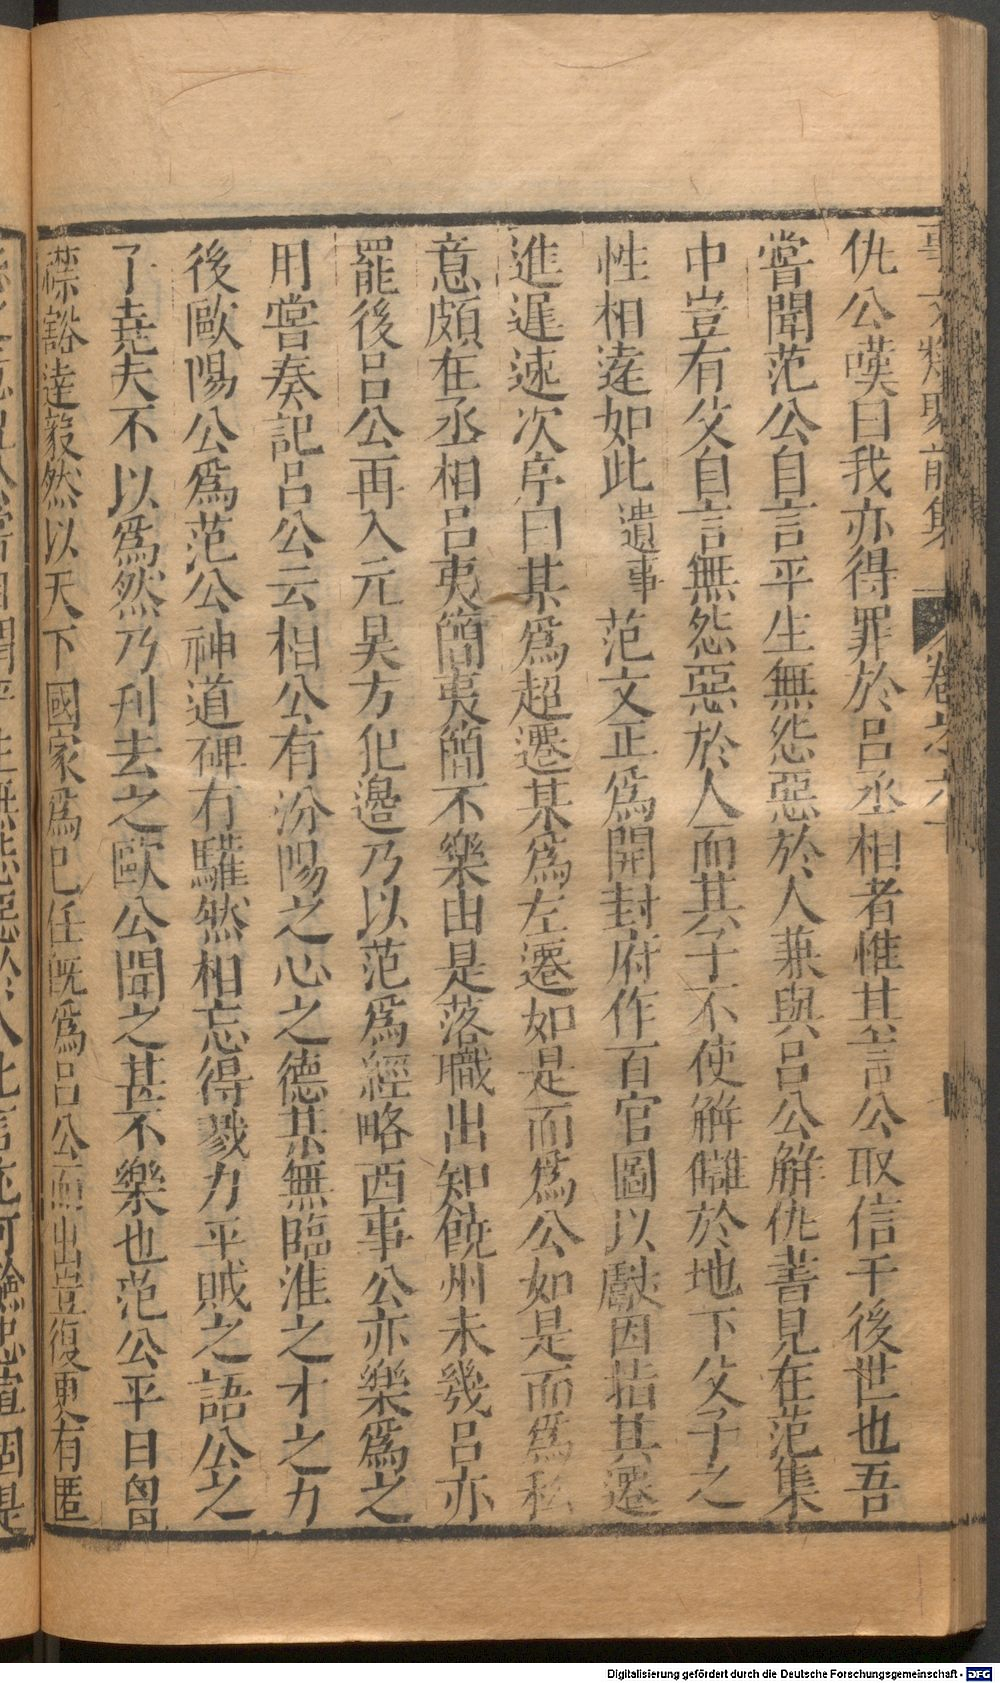 仇公嘆曰我亦得罪於呂丞相者惟其言公取信于後世也吾
嘗聞范公自言平生無怨惡於人兼與呂公解仇書見在范集
中豈有父自言無怨惡於人而其子不使解讎於地下父子之
性相違如此遺事 范文正為開封府作百官圖以獻因指其遷
進遲速次序曰某為超遷某為左遷如是而為公如是而為私
意頗在丞相呂夷簡夷簡不樂由是落職出知饒州未幾呂亦
罷後呂公再入元昊方犯邊乃以范為經略西事公亦樂為之
用嘗奏記呂公云相公有汾陽之心之德某無臨淮之才之力
後歐陽公為范公神道碑有驩然相忘得戮力平賊之語公之
了堯夫不以為然乃刊去之歐公聞之甚不樂也范公平日曾
襟豁達毅然以天下國家為己任旣為呂公而出豈復更有匿
Digitalisierung gefördert durch die Deutsche Forschungsgemeinschaft - DFG